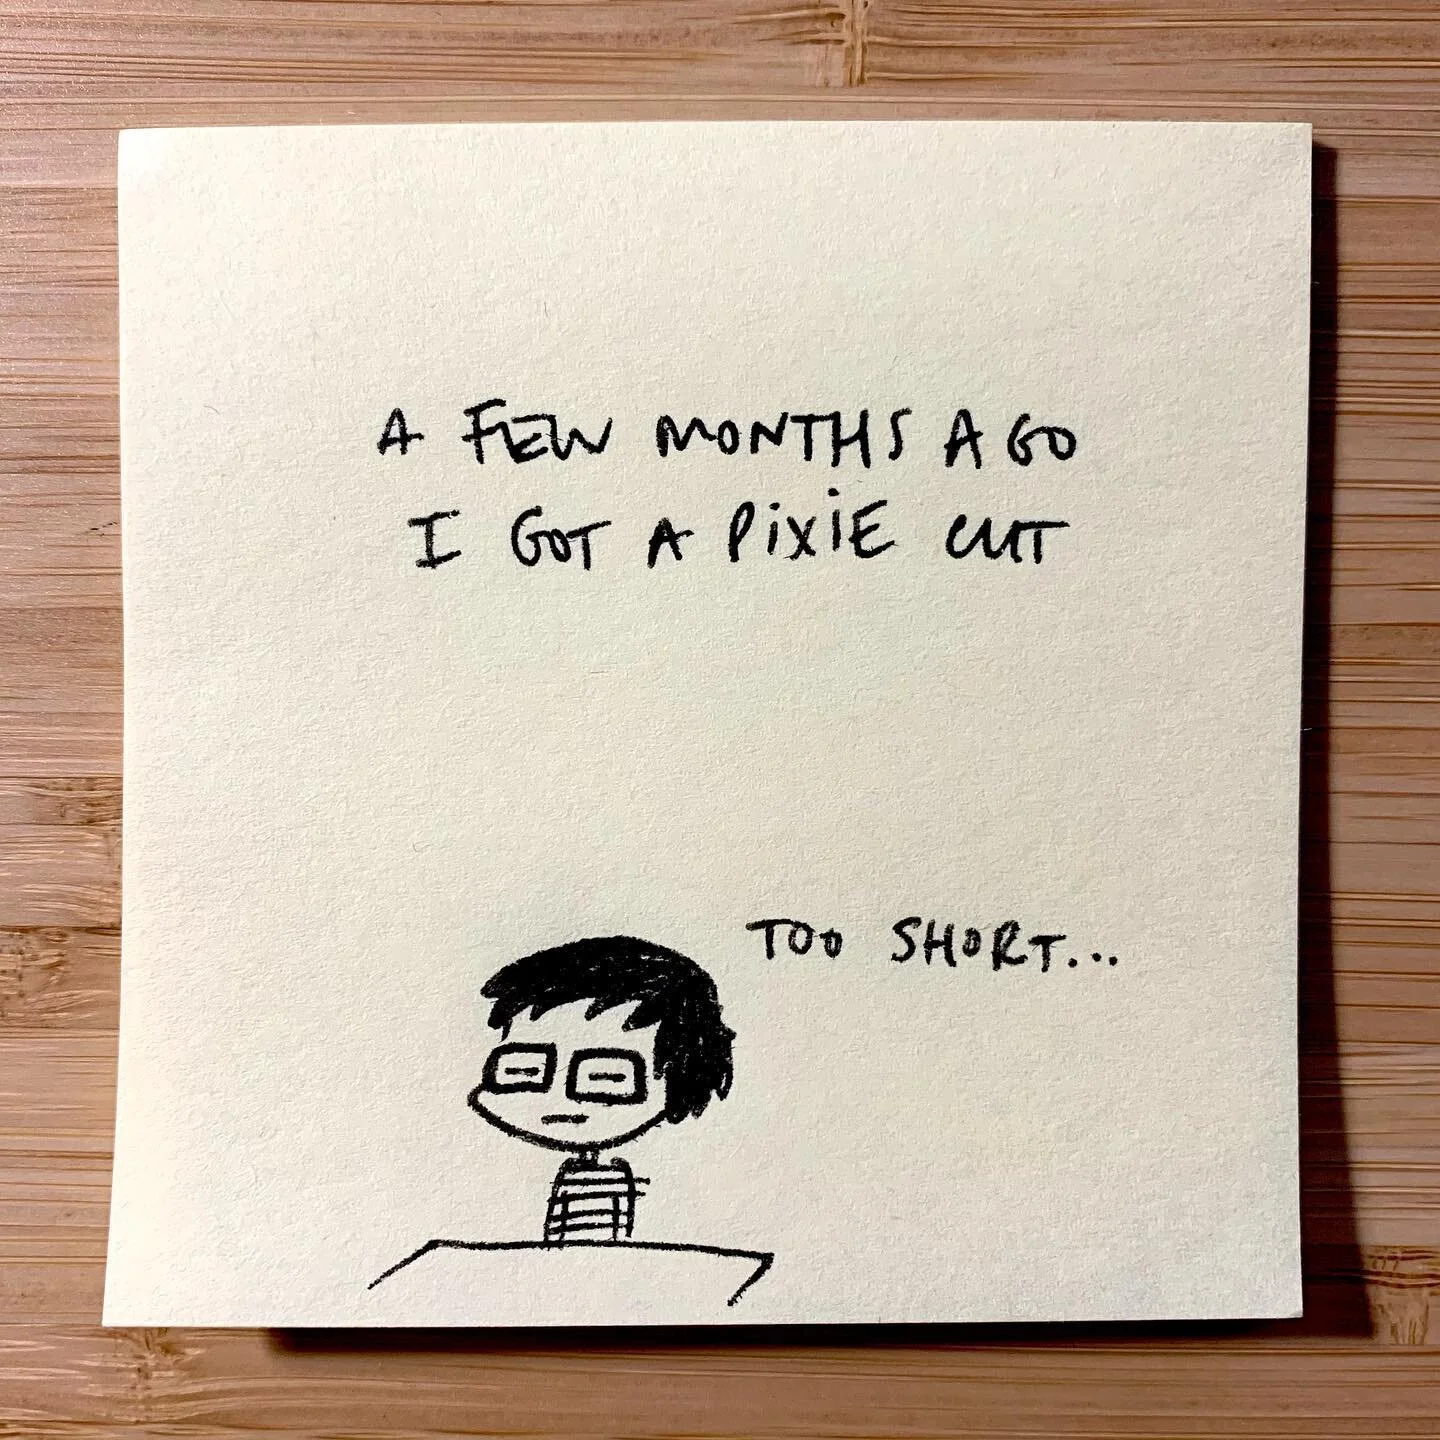 A FEW MONTHS AGO
I GOT A PIXIE CUT
TOO SHORT...